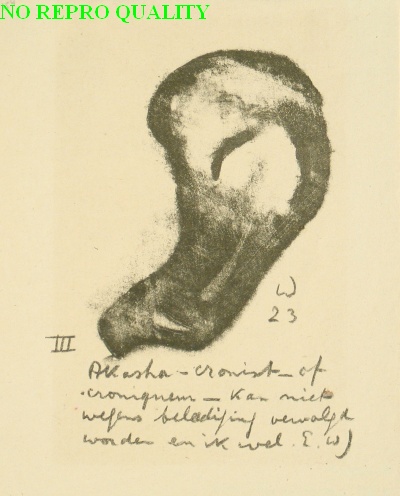 NO REPRO QUALITY
W
23
III
Akasha-cronist-of
croniqueur - Kan niet
wegens belediging vervolgd
worden en ik wel. E. W)